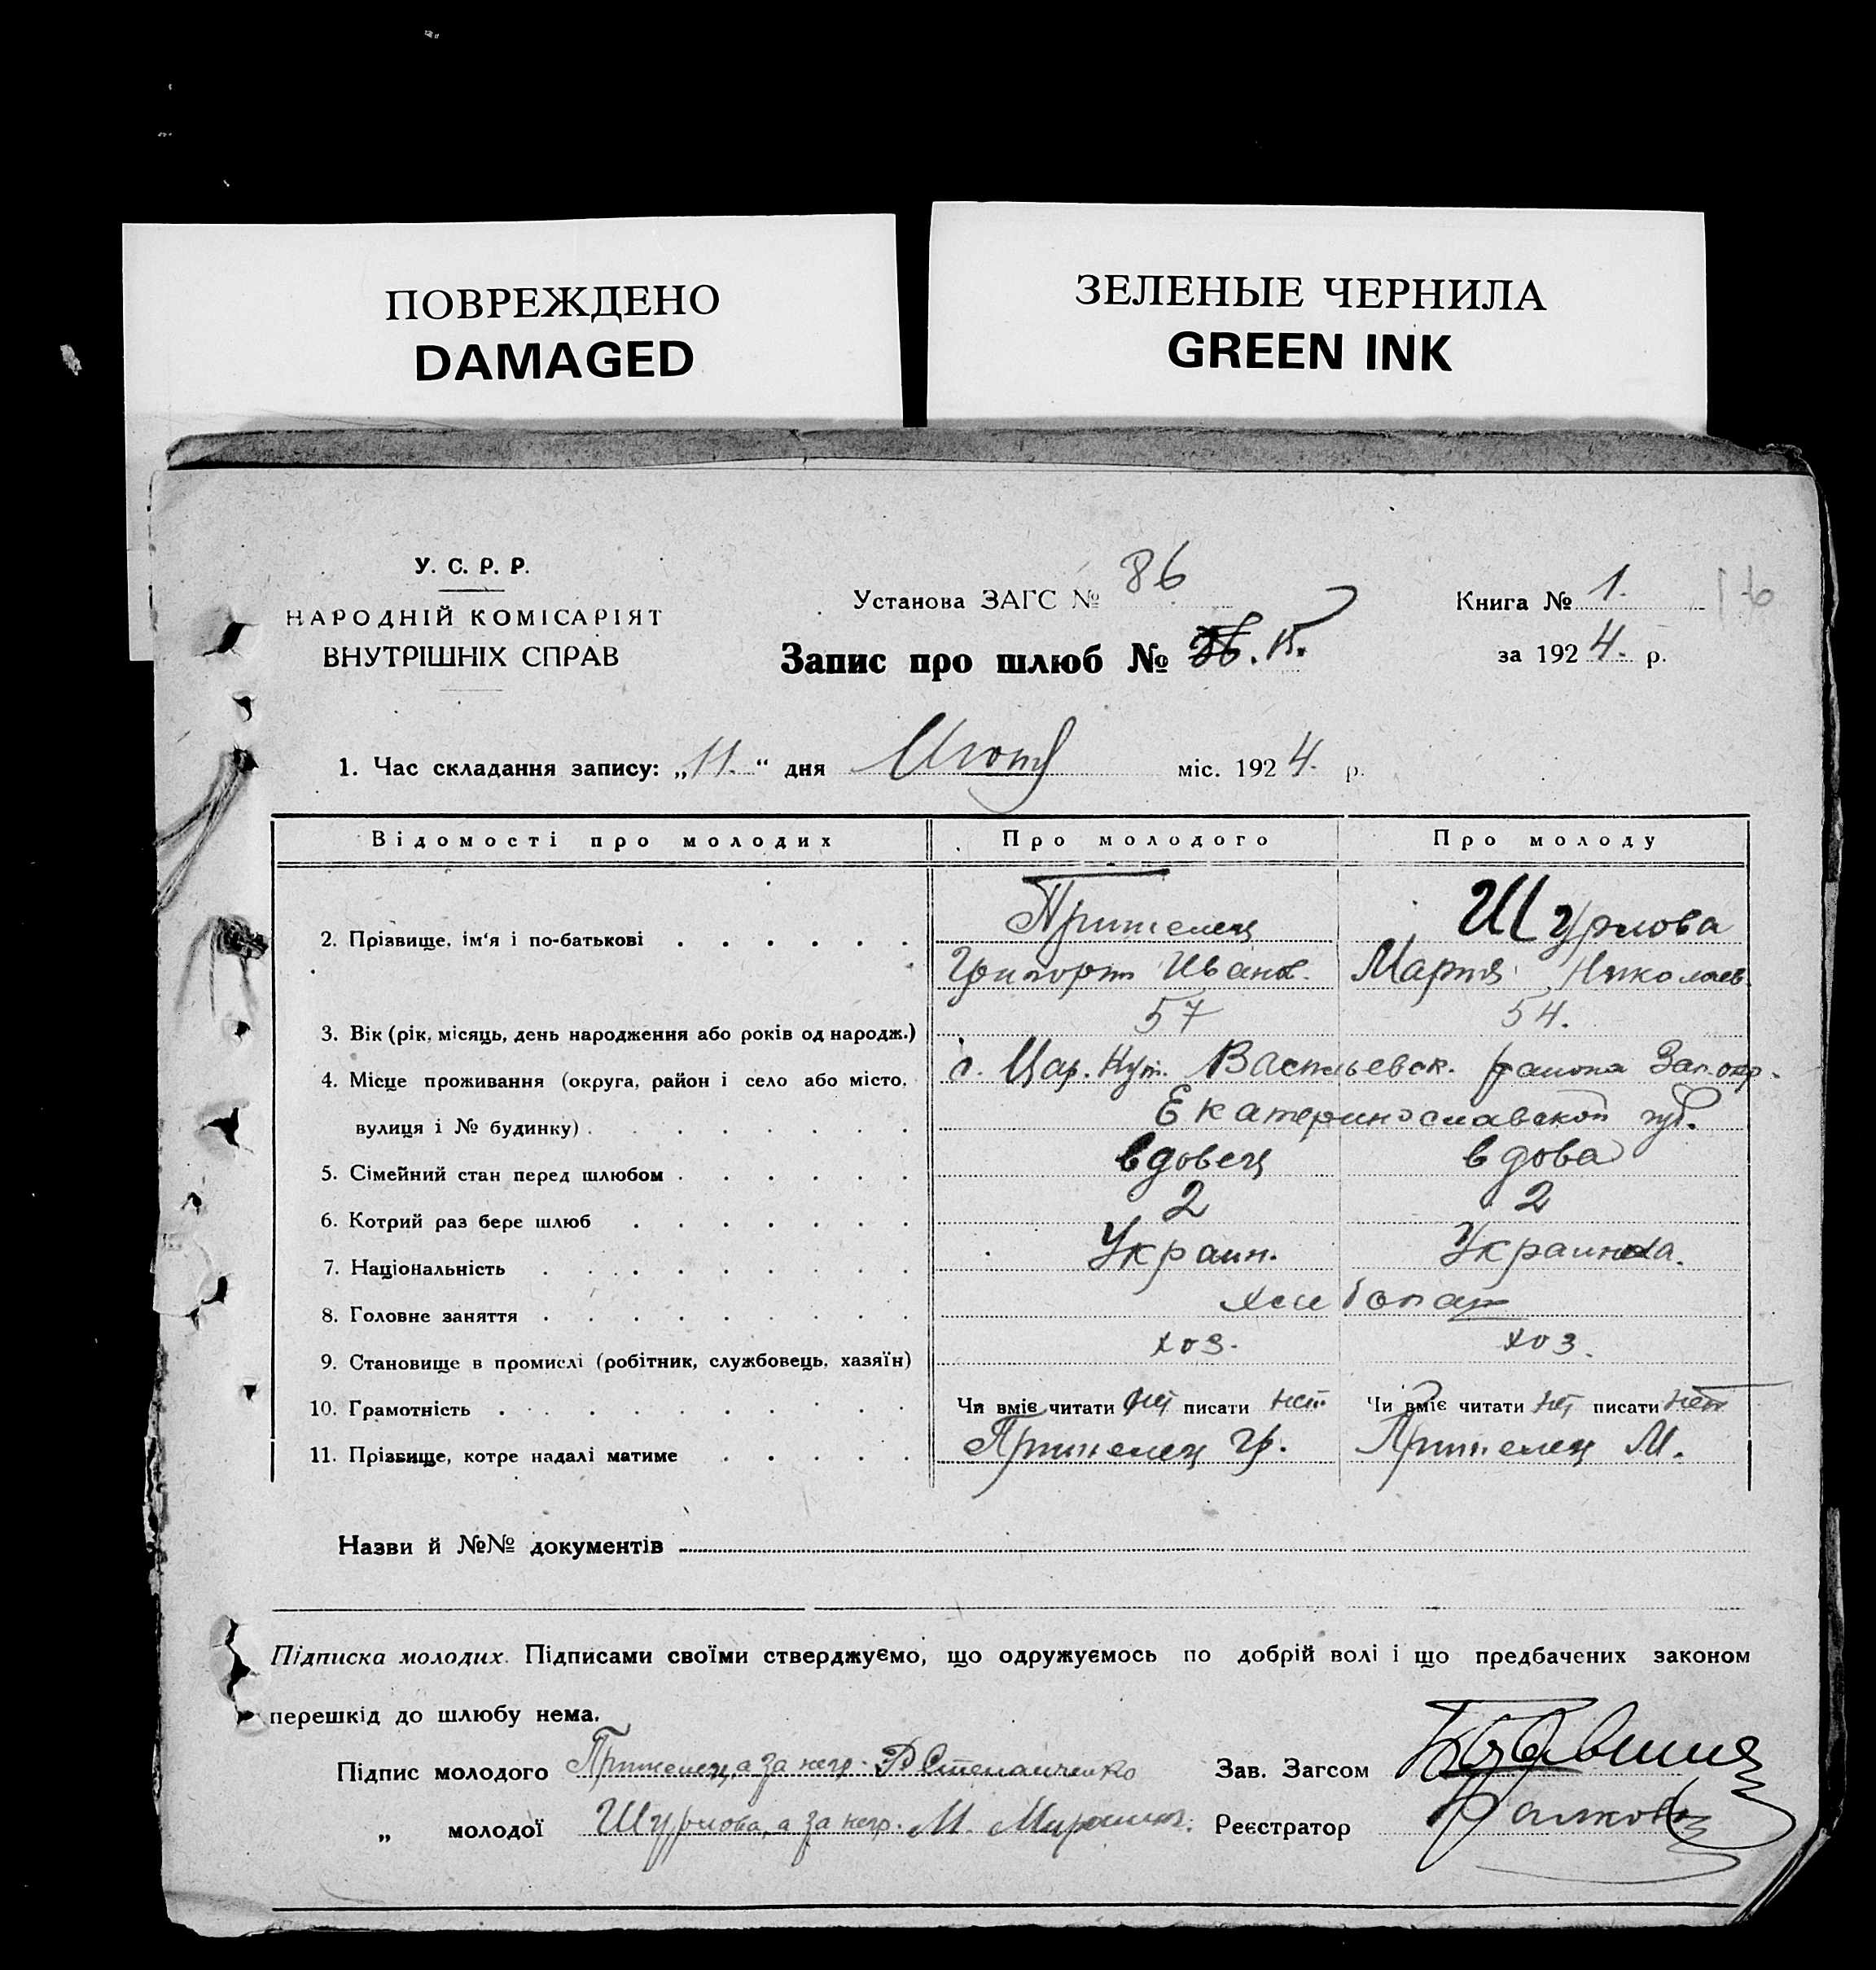 ПОВРЕЖДЕНО
DAMAGED
ЗЕЛЕНЫЕ ЧЕРНИЛА
GREEN INK
У. С. Р. Р.
НАРОДНІЙ КОМІСАРІЯТ
ВНУТРІШНІХ СПРАВ
Установа ЗАГС № 86
Запис про шлюб № 15.
Книга № 1.
за 1924. р.
1. Час складання запису: „11.“ дня міс. 1924. р.
Відомості про молодих Про молодого Про молоду
2. Прізвище, ім'я і по-батькові Пришелец Шурлова
Григорій Иванов. Мария Николаев.
3. Вік (рік, місяць, день народження або років од народж.) 57 54.
4. Місце проживання (округа, район і село або місто, с. Цар. Кут. Васильевск. района Зап. окр.
вулиця і № будинку) Екатеринославской губ.
5. Сімейний стан перед шлюбом вдовец вдова
6. Котрий раз бере шлюб 2 2
7. Національність Украин. Украинка.
8. Головне заняття хлебопаш
9. Становище в промислі (робітник, службовець, хазяїн) хоз. хоз.
10. Грамотність Чи вміє читати нет писати нет Чи вміє читати нет писати нет
11. Прізвище, котре надалі матиме Пришелец Гр. Пришелец М.
Назви й №№ документів
Підписка молодих. Підписами своїми стверджуємо, що одружуємось по добрій волі і що предбачених законом
перешкід до шлюбу нема.
Підпис молодого Пришелец, а за негр. Степанченко Зав. Загсом
„ молодої Шурлова, а за негр. М. Реєстратор